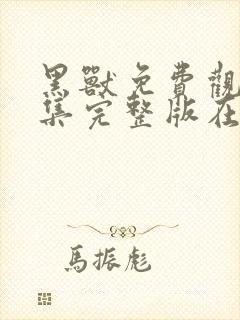 黑獸免費觀
集完整版在
馬振彪